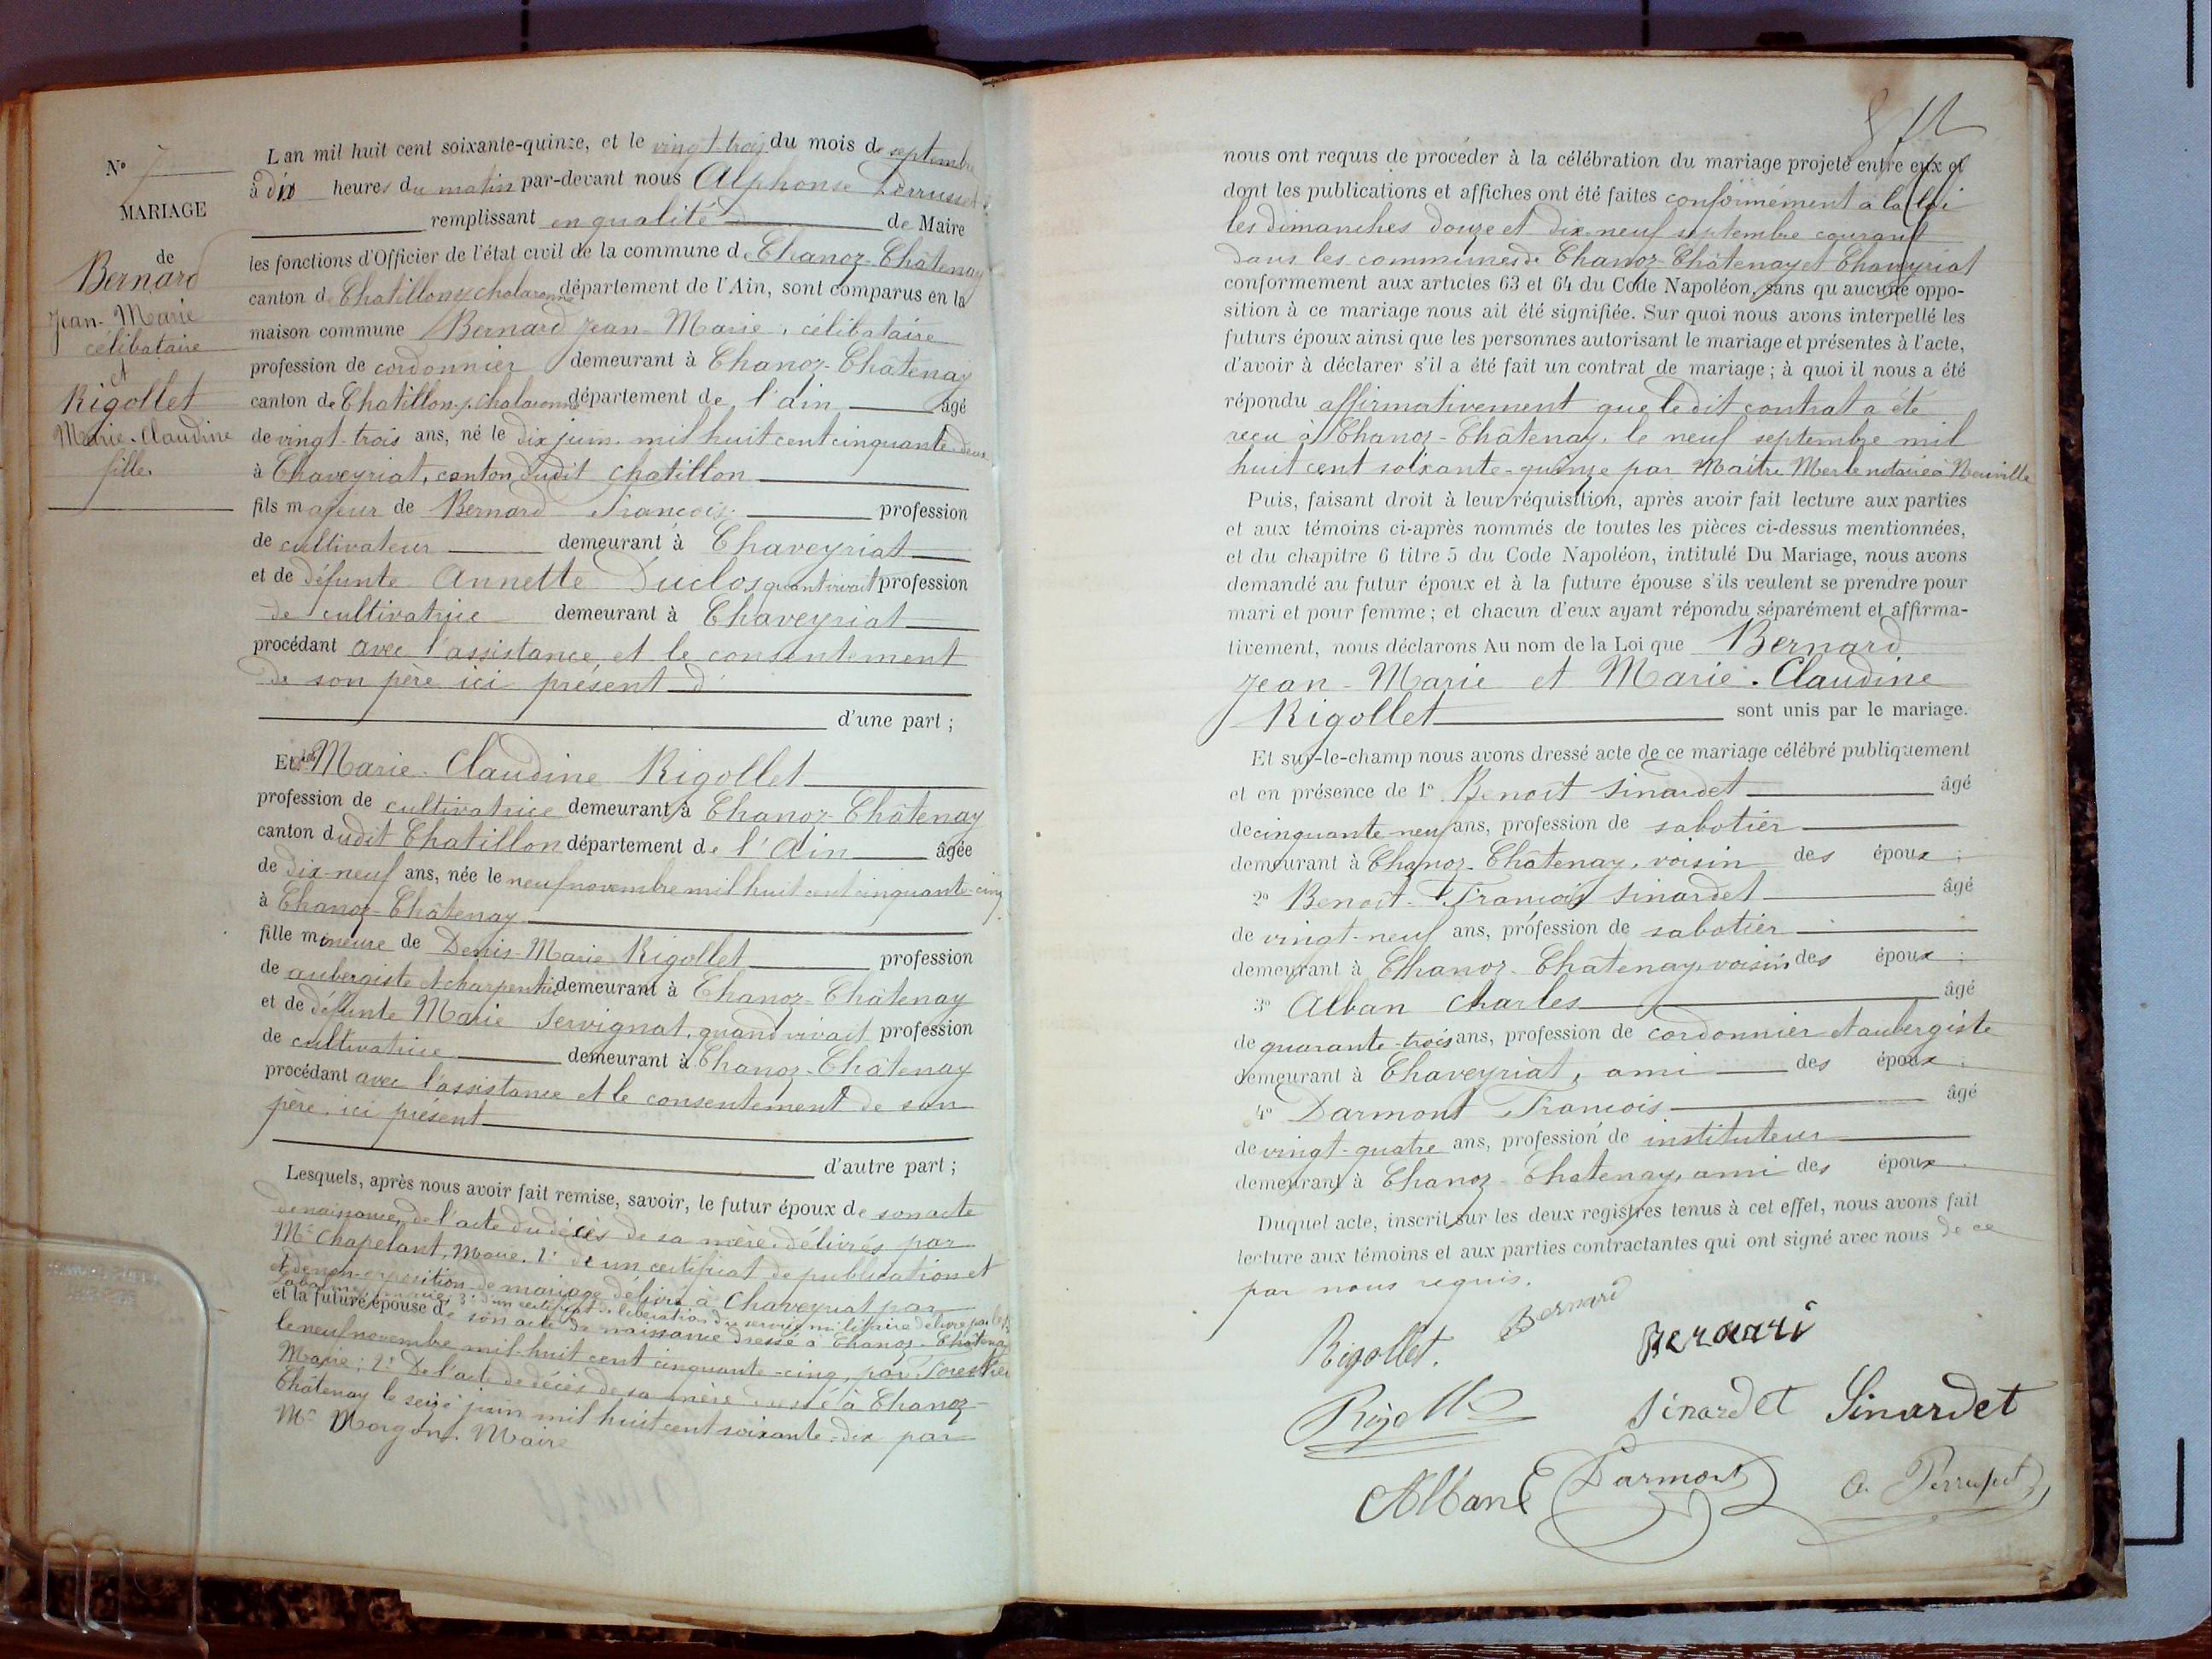 N° 7
MARIAGE
de
Bernard
Jean-Marie
célibataire
et
Rigollet
Marie-Claudine
fille.
L'an mil huit cent soixante-quinze, et le vingt-trois du mois de septembre
à dix heures du matin par-devant nous Alphonse Perrusset
remplissant en qualité de Maire
les fonctions d'Officier de l'état civil de la commune de Chanoz-Châtenay
canton de Chatillon s/ chalaronne département de l'Ain, sont comparus en la
maison commune Bernard Jean-Marie, célibataire
profession de cordonnier demeurant à Chanoz-Châtenay
canton de Chatillon s. chalaronne département de l'ain âgé
de vingt-trois ans, né le dix juin mil huit cent cinquante-deux
à Chaveyriat, canton dudit chatillon
fils majeur de Bernard François profession
de cultivateur demeurant à Chaveyriat
et de défunte Annette Duclos quant vivait profession
de cultivatrice demeurant à Chaveyriat
procédant avec l'assistance et le consentement
de son père ici présent d
d'une part ;
Et Marie-Claudine Rigollet
profession de cultivatrice demeurant à Chanoz-Châtenay
canton dudit Chatillon département de l'Ain âgée
de dix-neuf ans, née le neuf novembre mil huit cent cinquante-cinq
à Chanoz-Châtenay
fille mineure de Denis-Marie Rigollet profession
de aubergiste et charpentier demeurant à Chanoz-Châtenay
et de défunte Marie Servignat, quand vivait profession
de cultivatrice demeurant à Chanoz-Châtenay
procédant avec l'assistance et le consentement de son
père, ici présent
d'autre part ;
Lesquels, après nous avoir fait remise, savoir, le futur époux de son acte
de naissance, de l'acte du décès de sa mère, délivrés par
Mr Chapelant, Maire, 2° de un certificat de publication et
et de non-opposition de mariage délivré à Chaveyriat par
maire; 3° d'un certificat de libération du service militaire délivré par
et la future épouse de son acte de naissance dressé à Chanoz-Châtenay
le neuf novembre mil-huit cent cinquante-cinq, par Forestier
Maire; 2° De l'acte de décès de sa mère dressé à Chanoz-
Châtenay le seize juin mil huit cent soixante-dix par
Mr Morgon. Maire
nous ont requis de procéder à la célébration du mariage projeté entre eux et
dont les publications et affiches ont été faites conformément à la loi
les dimanches douze et dix-neuf septembre courant
dans les communes de Chanoz-Châtenay et Chaveyriat
conformement aux articles 63 et 64 du Code Napoléon, sans qu'aucune oppo-
sition à ce mariage nous ait été signifiée. Sur quoi nous avons interpellé les
futurs époux ainsi que les personnes autorisant le mariage et présentes à l'acte,
d'avoir à déclarer s'il a été fait un contrat de mariage ; à quoi il nous a été
répondu affirmativement que ledit contrat a été
reçu à Chanoz-Châtenay, le neuf septembre mil
huit cent soixante-quinze par Maitre Merle notaire à Neuville
Puis, faisant droit à leur réquisition, après avoir fait lecture aux parties
et aux témoins ci-après nommés de toutes les pièces ci-dessus mentionnées,
et du chapitre 6 titre 5 du Code Napoléon, intitulé Du Mariage, nous avons
demandé au futur époux et à la future épouse s'ils veulent se prendre pour
mari et pour femme ; et chacun d'eux ayant répondu séparément et affirma-
tivement, nous déclarons Au nom de la Loi que Bernard
Jean-Marie et Marie-Claudine
Rigollet sont unis par le mariage.
Et sur-le-champ nous avons dressé acte de ce mariage célébré publiquement
et en présence de 1° Benoit Sinardet âgé
de cinquante-neuf ans, profession de sabotier
demeurant à Chanoz-Châtenay, voisin des époux ;
2° Benoit-François Sinardet âgé
de vingt-neuf ans, profession de sabotier
demeurant à Chanoz-Châtenay, voisin des époux ;
3° Alban Charles âgé
de quarante-trois ans, profession de cordonnier et aubergiste
demeurant à Chaveyriat, ami des époux ;
4° Darmont François âgé
de vingt-quatre ans, profession de instituteur
demeurant à Chanoz-Chatenay, ami des époux.
Duquel acte, inscrit sur les deux registres tenus à cet effet, nous avons fait
lecture aux témoins et aux parties contractantes qui ont signé avec nous de ce
par nous requis.
Rigollet. Bernard Bernard
Rigollet Sinardet Sinardet
Alban C Darmont A. Perrusset